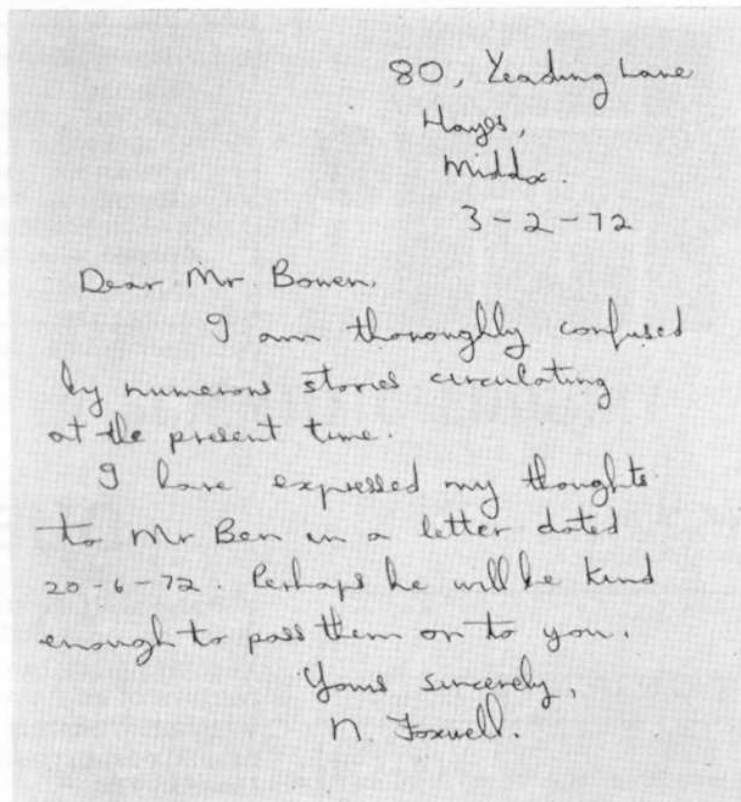 80, Yeading Lane
Hayes,
Middx.
3-2-72
Dear Mr Bowen,
I am thoroughly confused
by numerous stories circulating
at the present time.
I have expressed my thoughts
to Mr Ben in a letter dated
20-6-72. Perhaps he will be kind
enough to pass them on to you.
Yours sincerely,
N. Foxwell.